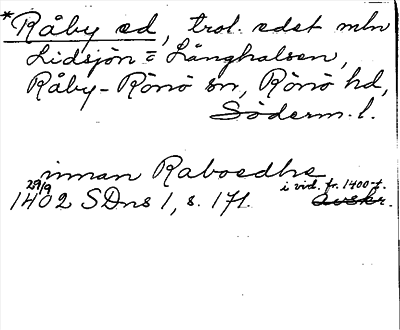 *Råby ed, trol. edet mln
Lidsjön o Långhalsen,
Råby-Rönö sn, Rönö hd,
Söderm. l.
innan Raboedhe
29/9 i vid. fr. 1400-t.
1402 SDns 1, s. 171. Avskr.